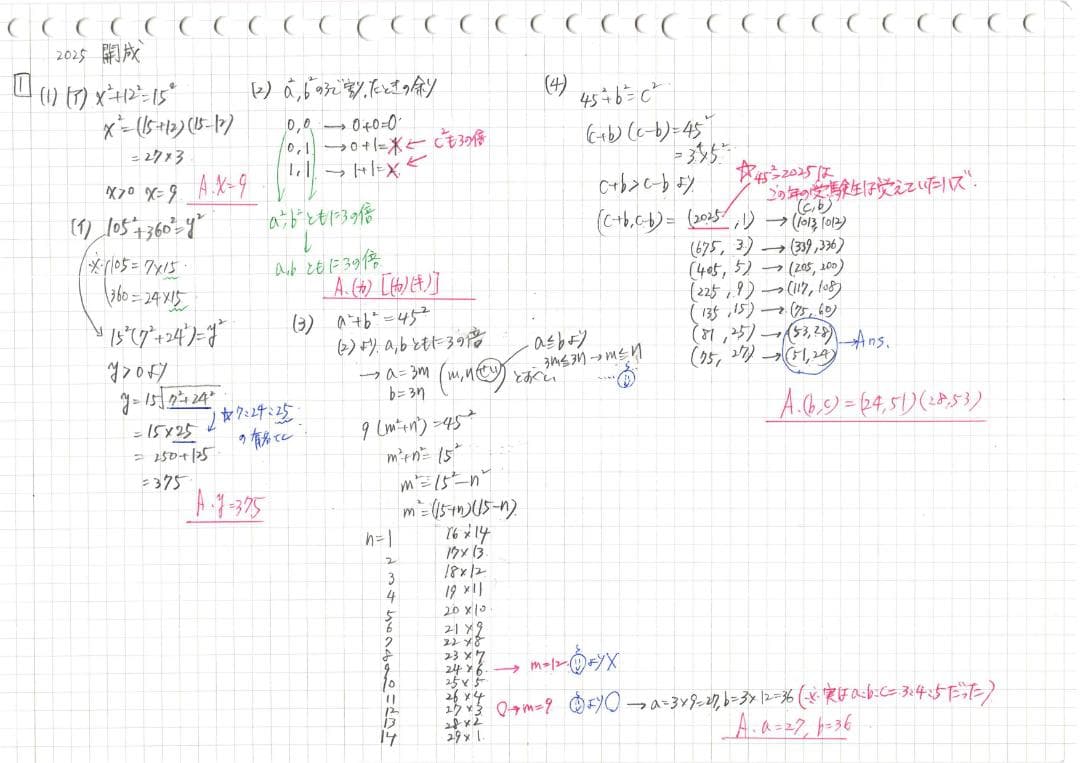 2025 開成
1
(1) (ア) x²+12²=15²
x²=(15+12)(15-12)
=27×3
x>0 x=9 A. x=9
(イ) 105²+360²=y²
※ 105=7×15
360=24×15
15²(7²+24²)=y²
y>0より
y=15√7²+24²
☆7:24:25
の有名比
=15×25
=250+125
=375
A. y=375
(2) a²,b²の3で割ったときの余り
0,0→0+0=0
0,1→0+1=1 ←c²も3の倍
1,1→1+1=
a²,b²ともに3の倍
a,bともに3の倍
A.(カ) [(カ)(キ)]
(3) a²+b²=45²
(2)より a,bともに3の倍
→a=3m
b=3n
a≦bより
3m≦3n→m≦n
9(m²+n²)=45²
m²+n²=15²
m²=15²-n²
m²=(15+n)(15-n)
n=1 16×14
2 17×13
3 18×12
4 19×11
5 20×10
6 21×9
7 22×8
8 23×7
9 24×6 → m=12 より×
10 25×5
11 26×4
12 27×3 ○→m=9 より○→a=3×9=27,b=3×12=36 (※実はa:b:c=3:4:5だった)
13 28×2
14 29×1
A. a=27, b=36
(4) 45²+b²=c²
(c+b)(c-b)=45²
=3⁴×5²
☆45²=2025は
この年の受験生は覚えていたハズ
c+b>c-bより
(c,b)
(c+b,c-b)=(2025,1)→(1013,1012)
(675, 3)→(339,336)
(405, 5)→(205,200)
(225, 9)→(117,108)
(135,15)→(75,60)
(81, 25)→(53,28)
(75, 27)→(51,24)
→Ans.
A. (b,c)=(24,51)(28,53)